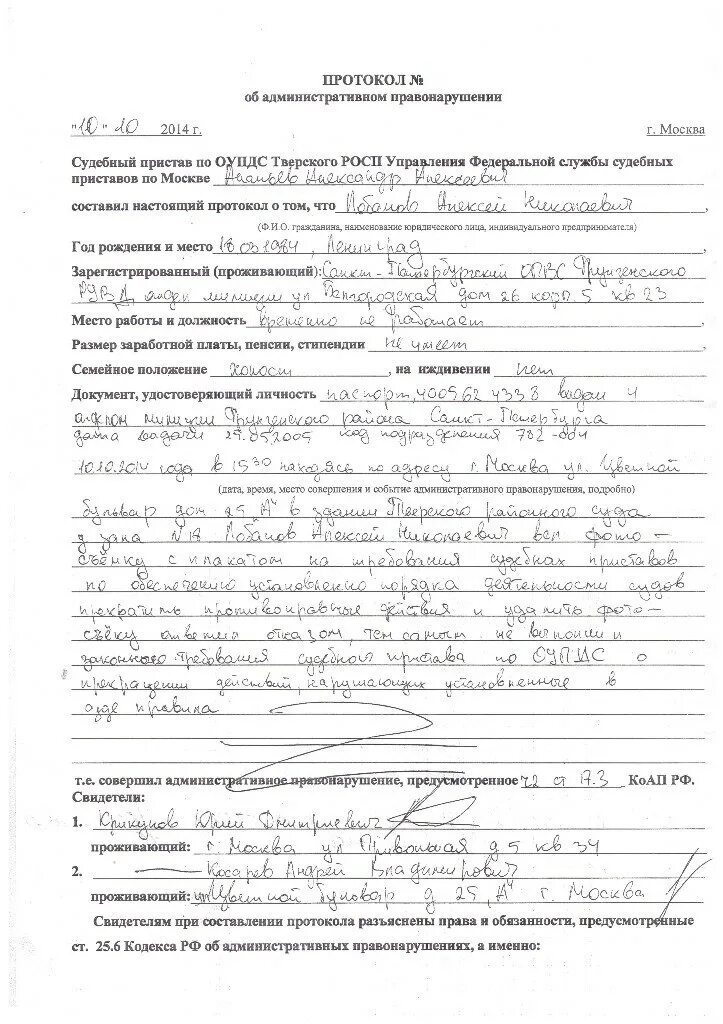 ПРОТОКОЛ №
об административном правонарушении
"10" 10 2014 г. г. Москва
Судебный пристав по ОУПДС Тверского РОСП Управления Федеральной службы судебных
приставов по Москве Александр Алексеевич
составил настоящий протокол о том, что Лобанов Алексей Николаевич ,
(Ф.И.О. гражданина, наименование юридического лица, индивидуального предпринимателя)
Год рождения и место 18 03 1984 , Ленинград ,
Зарегистрированный (проживающий): Санкт-Петербургский Фрунзенского
милиции ул Белгородская дом 26 корп. 5 кв 23
Место работы и должность временно не работает
Размер заработной платы, пенсии, стипендии не имеет
Семейное положение холост , на иждивении нет
Документ, удостоверяющий личность паспорт, 4005 62 4338 выдан 4
отделом милиции Фрунзенского района Санкт-Петербурга
дата выдачи 25.05.2005 код подразделения 782-004
10.10.2014 года в 1530 находясь по адресу г. Москва ул. Цветной
(дата, время, место совершения и событие административного правонарушения, подробно)
бульвар дом 25 "А" в здании Тверского районного суда
у зала №18 Лобанов Алексей Николаевич вел фото-
съёмку с плакатом на требования судебных приставов
по обеспечению установленно порядка деятельности судов
прекратить противоправные действия и удалить фото-
съёку ответил отказом, тем самым не выполнил
законного требования судебного пристава по ОУПДС о
прекращении действий, нарушающих установленные в
суде правила
т.е. совершил административное правонарушение, предусмотренное ч2 ст 17.3 КоАП РФ.
Свидетели:
1. Крикунов Юрий Дмитриевич
проживающий: г. Москва ул Привольная д 5 кв 34
2. Косарев Андрей Владимирович
проживающий: ул Цветной бульвар д 25 "А" г. Москва
Свидетелям при составлении протокола разъяснены права и обязанности, предусмотренные
ст. 25.6 Кодекса РФ об административных правонарушениях, а именно: